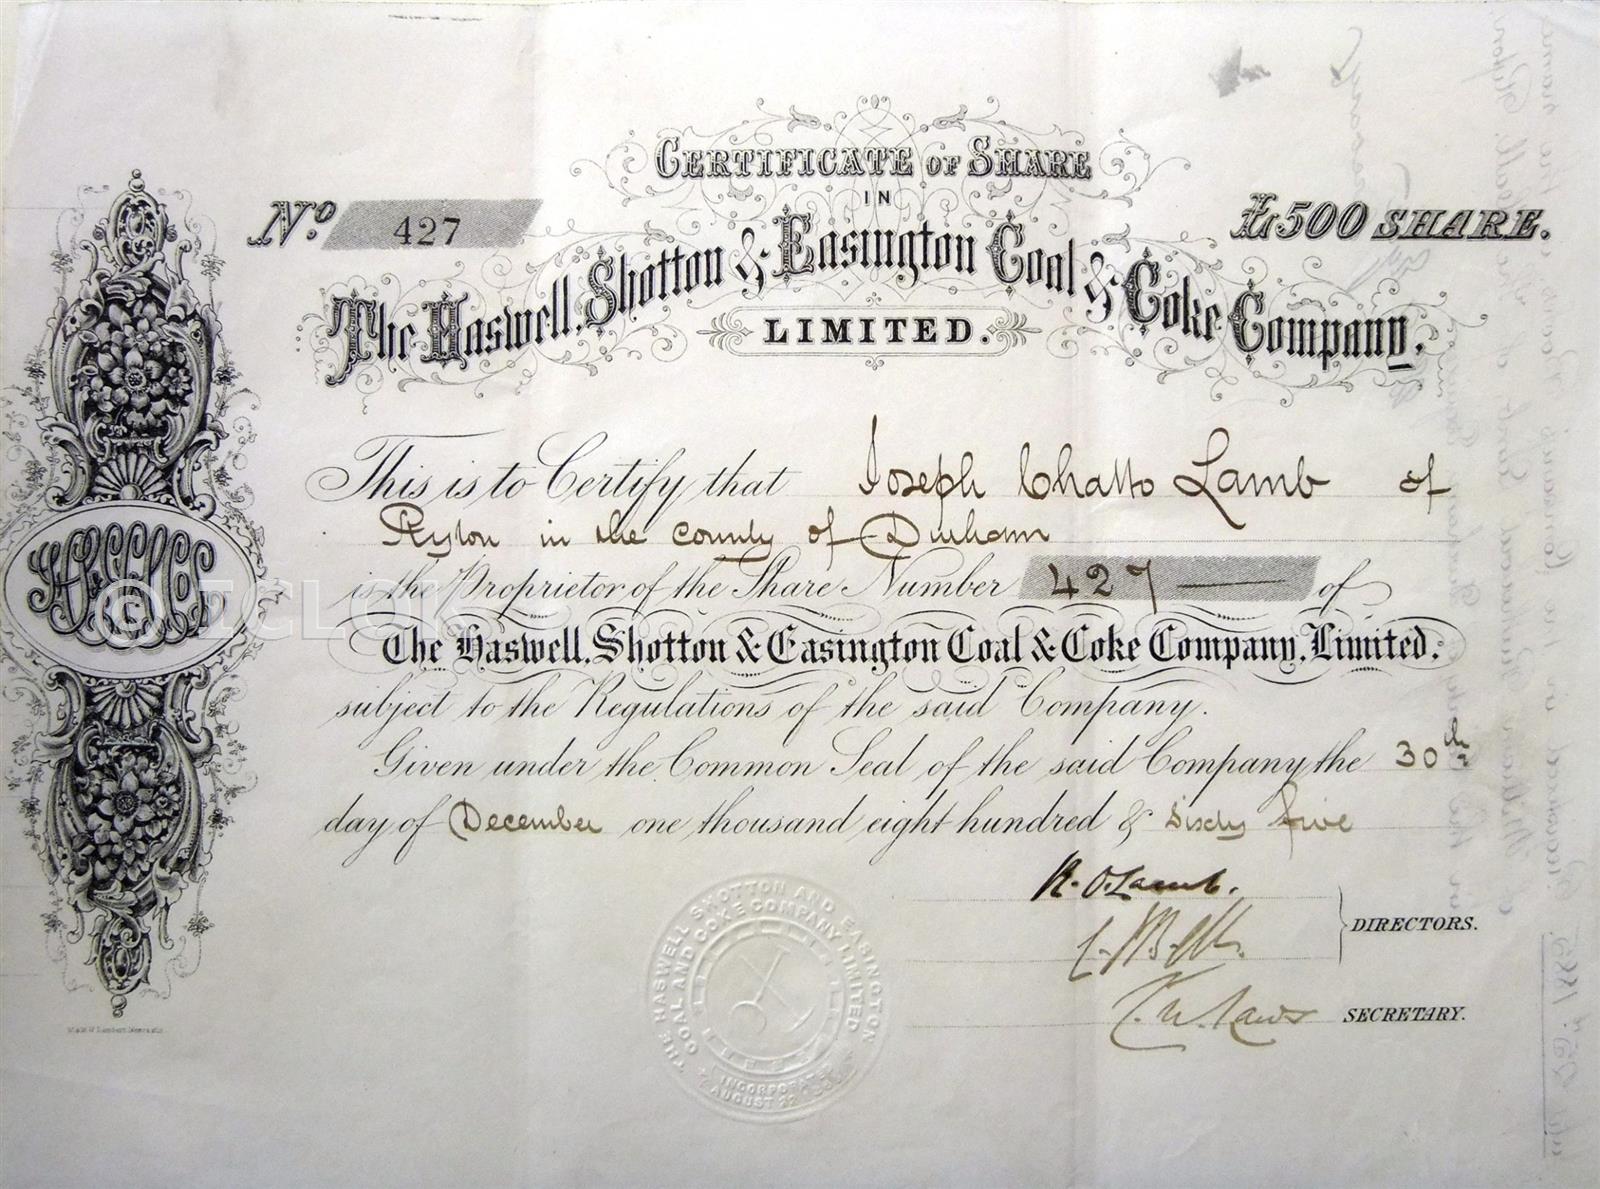 CERTIFICATE OF SHARE
IN
No. 427
£500 SHARE.
The Haswell, Shotton & Easington Coal & Coke Company,
LIMITED.
This is to Certify that Joseph Chatto Lamb of
Ryton in the county of Durham
is the Proprietor of the Share Number 427 of
The Haswell, Shotton & Easington Coal & Coke Company, Limited.
subject to the Regulations of the said Company.
Given under the Common Seal of the said Company the 30th
day of December one thousand eight hundred & Sixty five
R. O. Lamb.
DIRECTORS.
SECRETARY.
THE HASWELL SHOTTON AND EASINGTON
COAL AND COKE COMPANY LIMITED
INCORPORATED
AUGUST 22